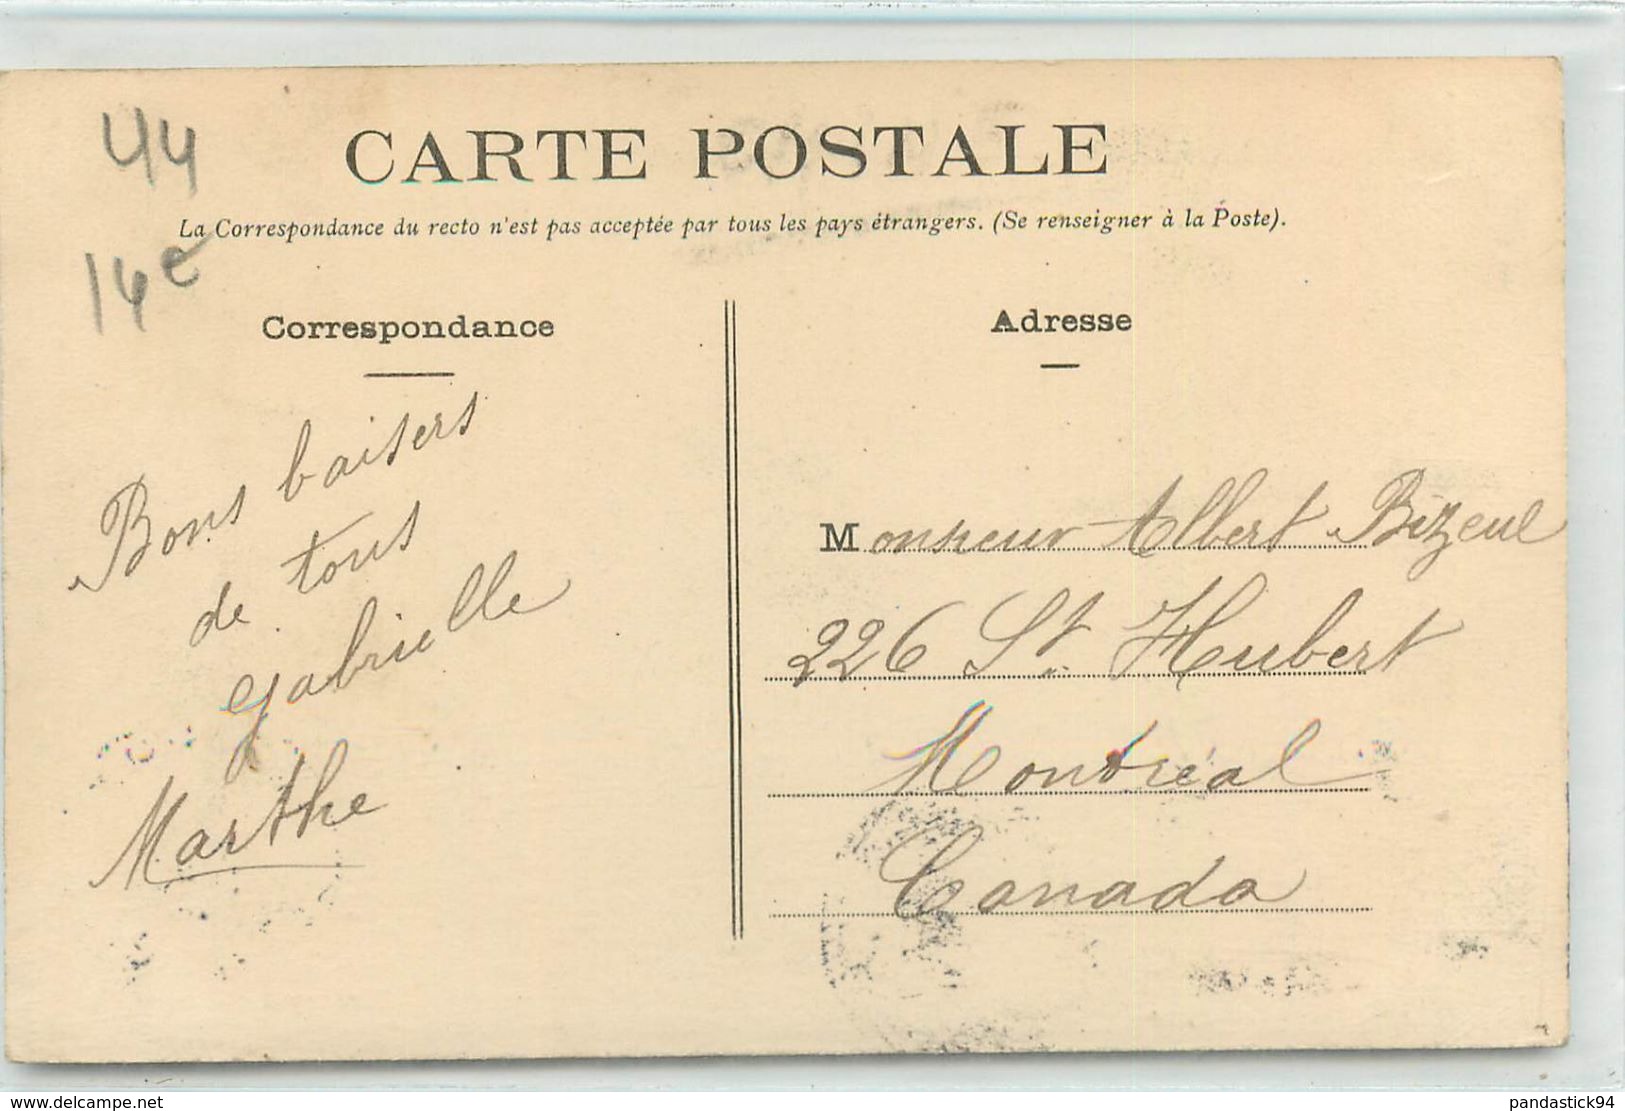 44
14e
CARTE POSTALE
La Correspondance du recto n'est pas acceptée par tous les pays étrangers. (Se renseigner à la Poste).
Correspondance
Bons baisers
de tous
Gabrielle
Marthe
Adresse
Monsieur Albert Bizeul
226 St. Hubert
Montréal
Canada
www.delcampe.net
pandastick94